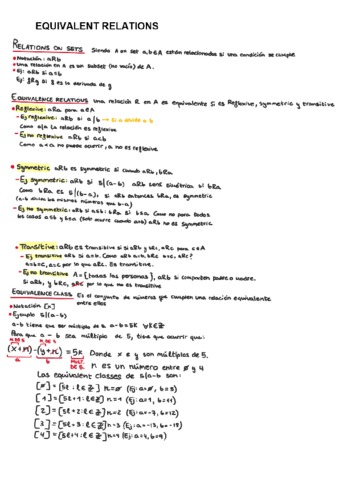 EQUIVALENT RELATIONS
RELATIONS ON SETS. Siendo A on set a,b∈A están relacionadas si una condición se cumple
• Notación: aRb
• Una relación en A es un subset (no vacío) de A.
• Ej: aRb si a=b
Ej: fRg si f es la derivada de g
EQUIVALENCE RELATIONS una relación R en A es equivalente si es Reflexive, symmetric y transitive
• Reflexive: aRa para a∈A
- Ej reflexive: aRb si a/b → Si a divide a b
Como a/a la relación es reflexive
- Ej no reflexive aRb si a<b
Como a<a no puede ocurrir, a no es reflexive
• Symmetric aRb es symmetric si cuando aRb, bRa
- Ej symmetric: aRb si 5|(a-b) aRb será simétrica si bRa
Como bRa es 5|(b-a), si aRb entonces bRa, es symmetric
(a-b son los mismos números que b-a)
- Ej no symmetric: aRb si a≤b: bRa si b≤a Como no para todos
los casos a≤b y b≤a (solo ocurre cuando a=b) aRb no es symmetric
• Transitive: aRb es transitive si si aRb y bRc, aRc para c∈A
- Ej transitive aRb si a=b. Como aRb a=b, bRc b=c, aRc?
a=b=c, a=c por lo que aRc. Es transitive.
- Ej no transitive A={todas las personas}, aRb si comparten padre o madre.
Si aRb, y bRc, aRc por lo que no es transitive
EQUIVALENCE CLASS Es el conjunto de números que cumplen una relación equivalente
entre ellos
• Notación [x]
• Ejemplo 5|(a-b)
a-b tiene que ser múltiplo de 5. a-b=5k ∀k∈Z
Para que a - b sea múltiplo de 5, tiene que ocurrir que:
(x+n)-(y+n) = 5k Donde x e y son múltiplos de 5.
a b MULT. DE 5 n es un número entre 0 y 4
Las equivalent classes de 5|a-b son:
[0]=[5l : l∈Z] n=0 (Ej: a=0, b=5)
[1]=[5l+1 : l∈Z] n=1 (Ej: a=1, b=11)
[2]=[5l+2 : l∈Z] n=2 (Ej: a=-7, b=12)
[3]=[5l+3 : l∈Z] n=3 (Ej: a=-13, b=-18)
[4]=[5l+4 : l∈Z] n=4 (Ej: a=4, b=9)